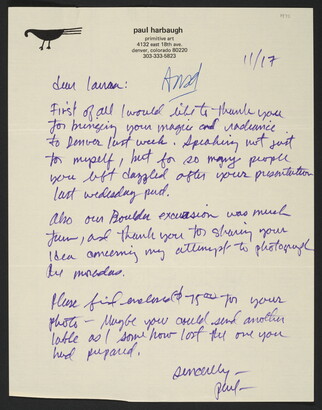 paul harbaugh
primitive art
4132 east 18th ave.
denver, colorado 80220
303-333-5823
11/17
Dear Laura:
First of all I would like to thank you
for bringing your magic and radiance
to Denver last week. Speaking not just
for myself, but for so many people
you left dazzled after your presentation
last wednesday
Also our Boulder excursion was much
fun, and thank you for sharing your
idea concerning my attempt to photograph
the
Please find enclosed $ for your
photo — Maybe you could send another
lable as I some how lost the one you
had prepared.
Sincerely —
Paul —